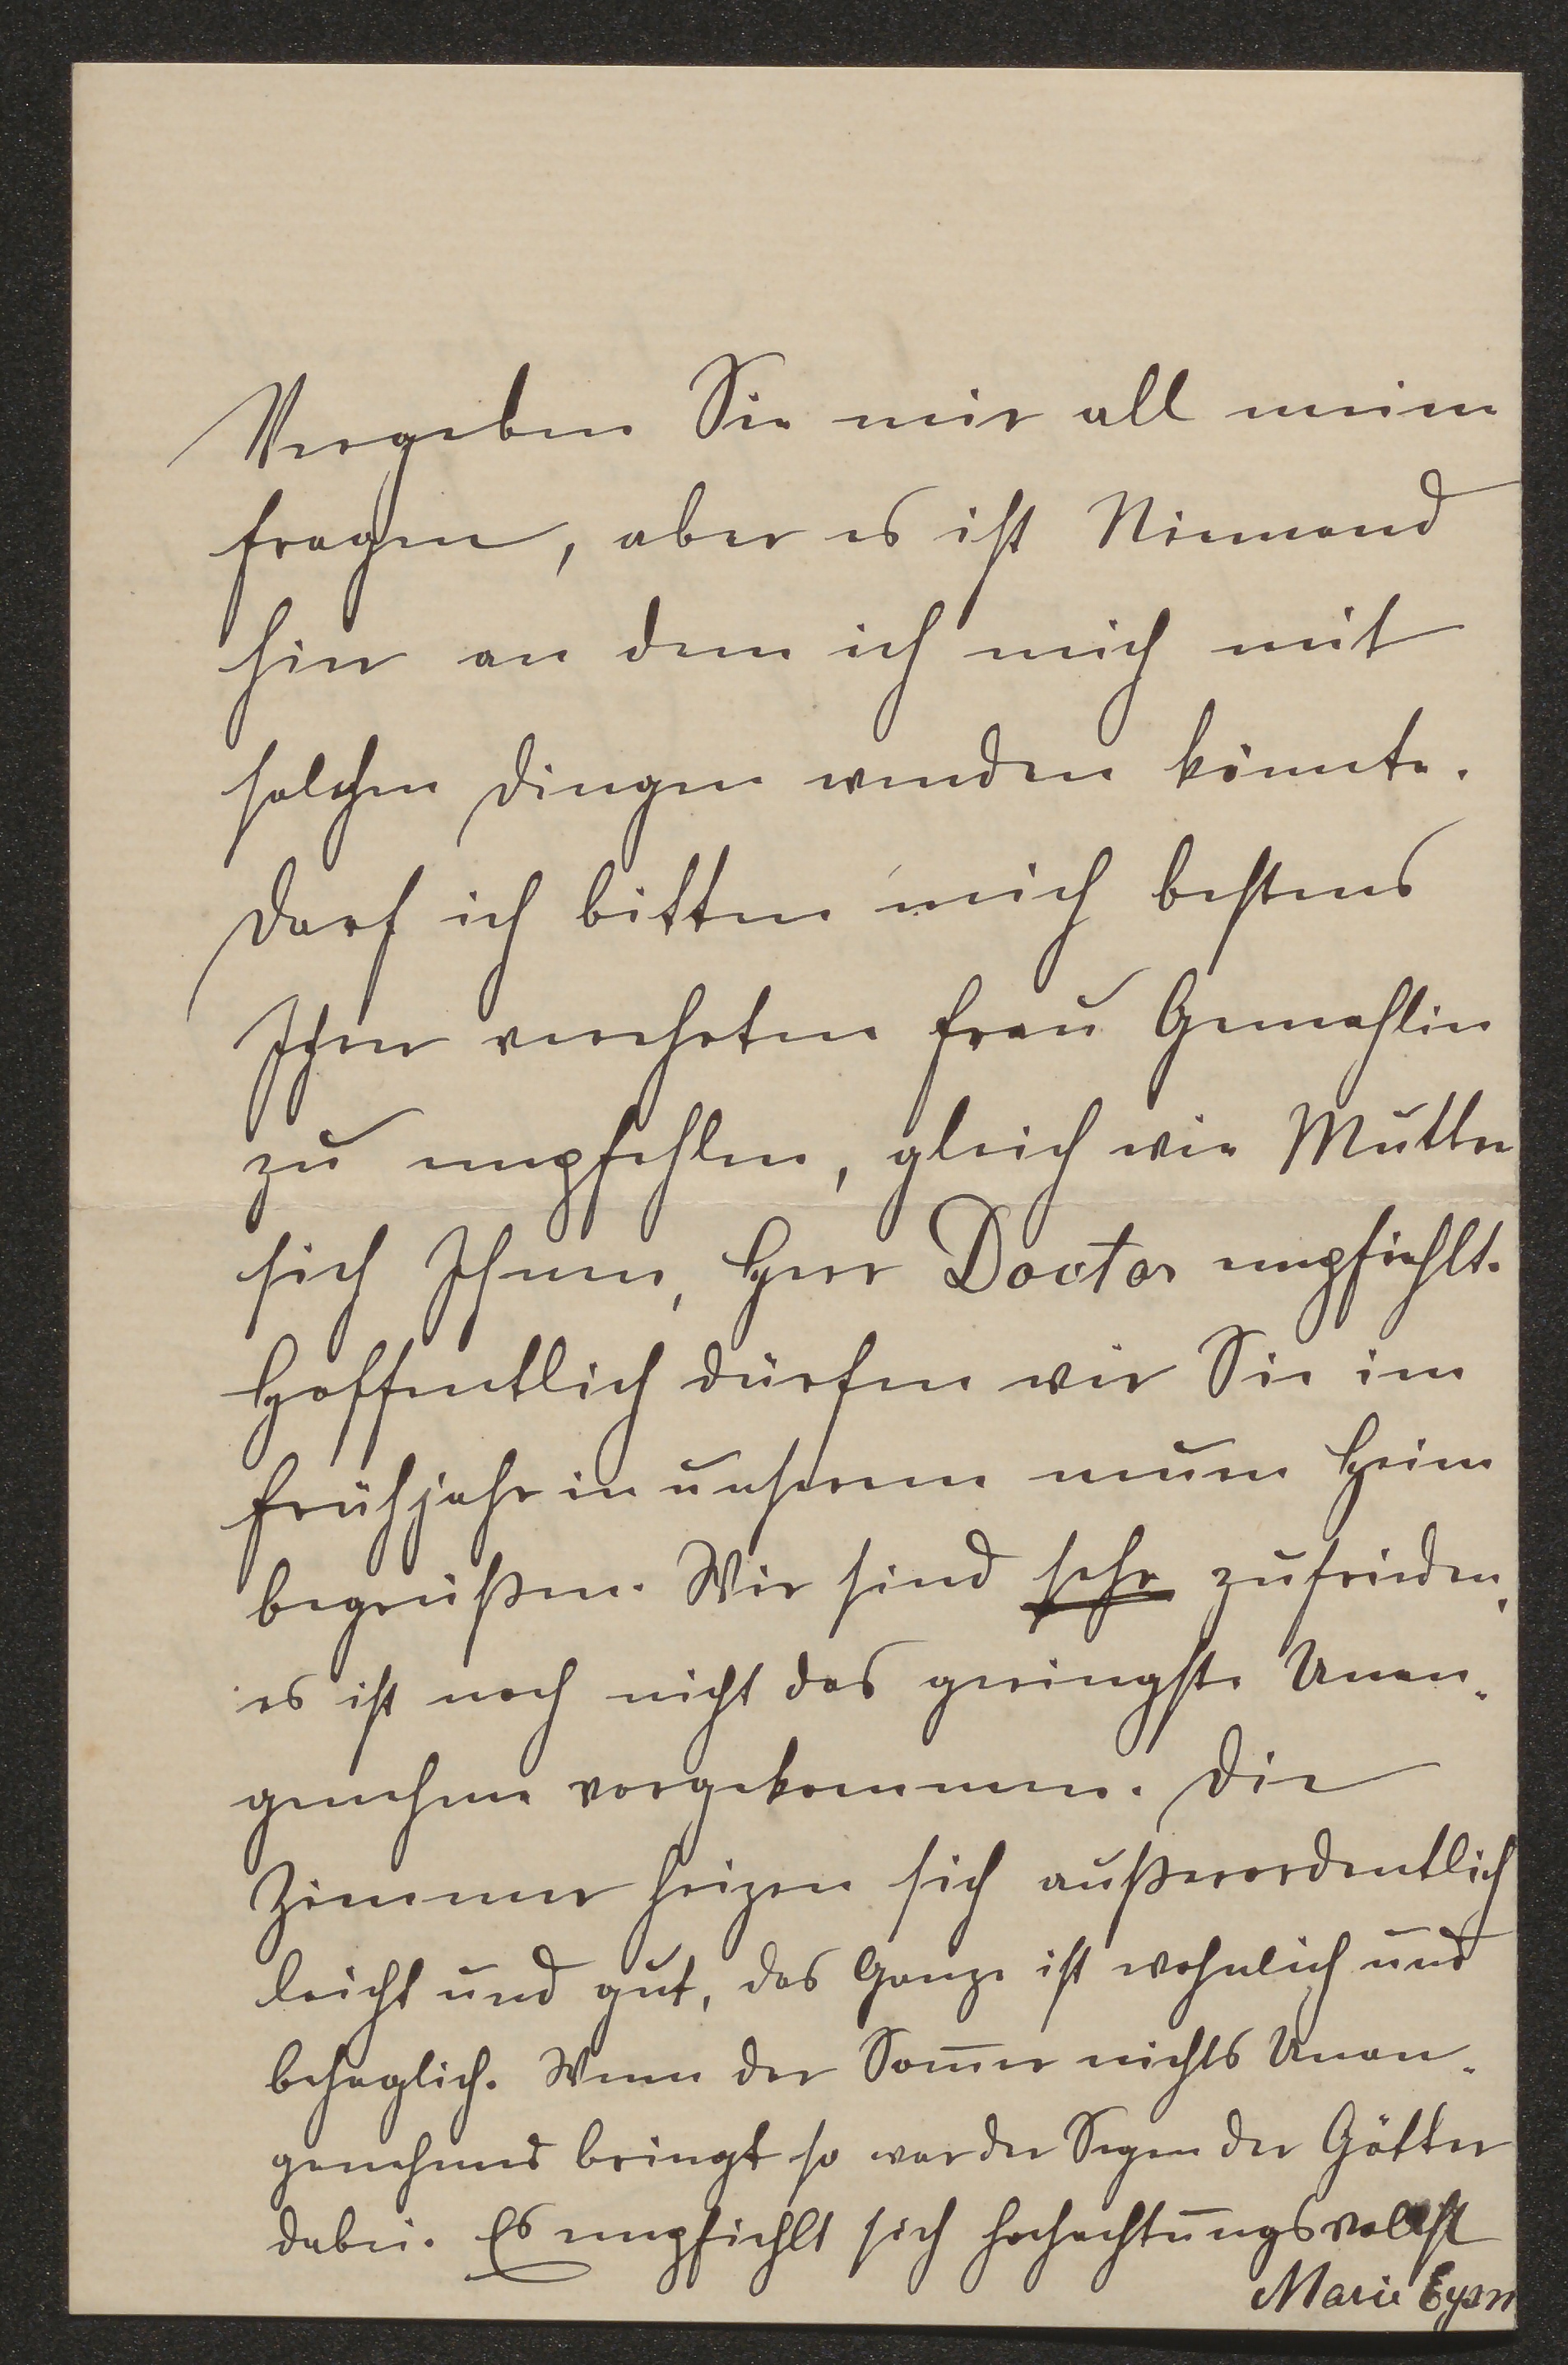 Vergeben Sie mir all meine
Fragen, aber es ist Niemand
hier an dem ich mich mit
solchen Dingen wenden könnte.
Darf ich bitten mich bestens
Ihrer verehrten Frau Gemahlin
zu empfehlen, gleich wie Mutter
sich Ihnen, Herr Doctor empfiehlt.
Hoffentlich dürfen wir Sie im
Frühjahr in unserem neuen Heim
begrüßen. Wir sind sehr zufrieden,
es ist noch nicht das geringste Unan-
genehme vorgekommen. Die
Zimmer heizen sich außerordentlich
leicht und gut, das Ganze ist wohnlich und
behaglich. Wenn der Som̅er nichts Unan-
genehmes bringt so war der Segen der Götter
dabei. Es empfiehlt sich hochachtungsvollst
Marie Eysn